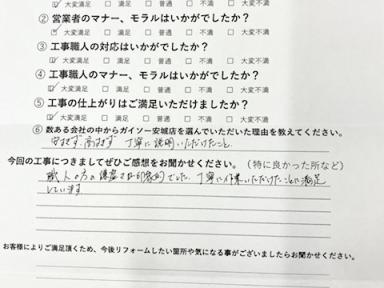 ☑ 大変満足 □ 満足 □ 普通 □ 不満 □ 大変不満
② 営業者のマナー、モラルはいかがでしたか?
☑ 大変満足 □ 満足 □ 普通 □ 不満 □ 大変不満
③ 工事職人の対応はいかがでしたか?
☑ 大変満足 □ 満足 □ 普通 □ 不満 □ 大変不満
④ 工事職人のマナー、モラルはいかがでしたか?
☑ 大変満足 □ 満足 □ 普通 □ 不満 □ 大変不満
⑤ 工事の仕上がりはご満足いただけましたか?
☑ 大変満足 □ 満足 □ 普通 □ 不満 □ 大変不満
⑥ 数ある会社の中からガイソー安城店を選んでいただいた理由を教えてください。
安すぎず、高すぎず 丁寧に説明いただけたこと。
今回の工事につきましてぜひご感想をお聞かせください。(特に良かった所など)
職人の方の謙虚さが印象的でした。丁寧に作業いただけたことに満足
しています
お客様によりご満足頂くため、今後リフォームしたい箇所や気になる事がございましたらお聞かせください。